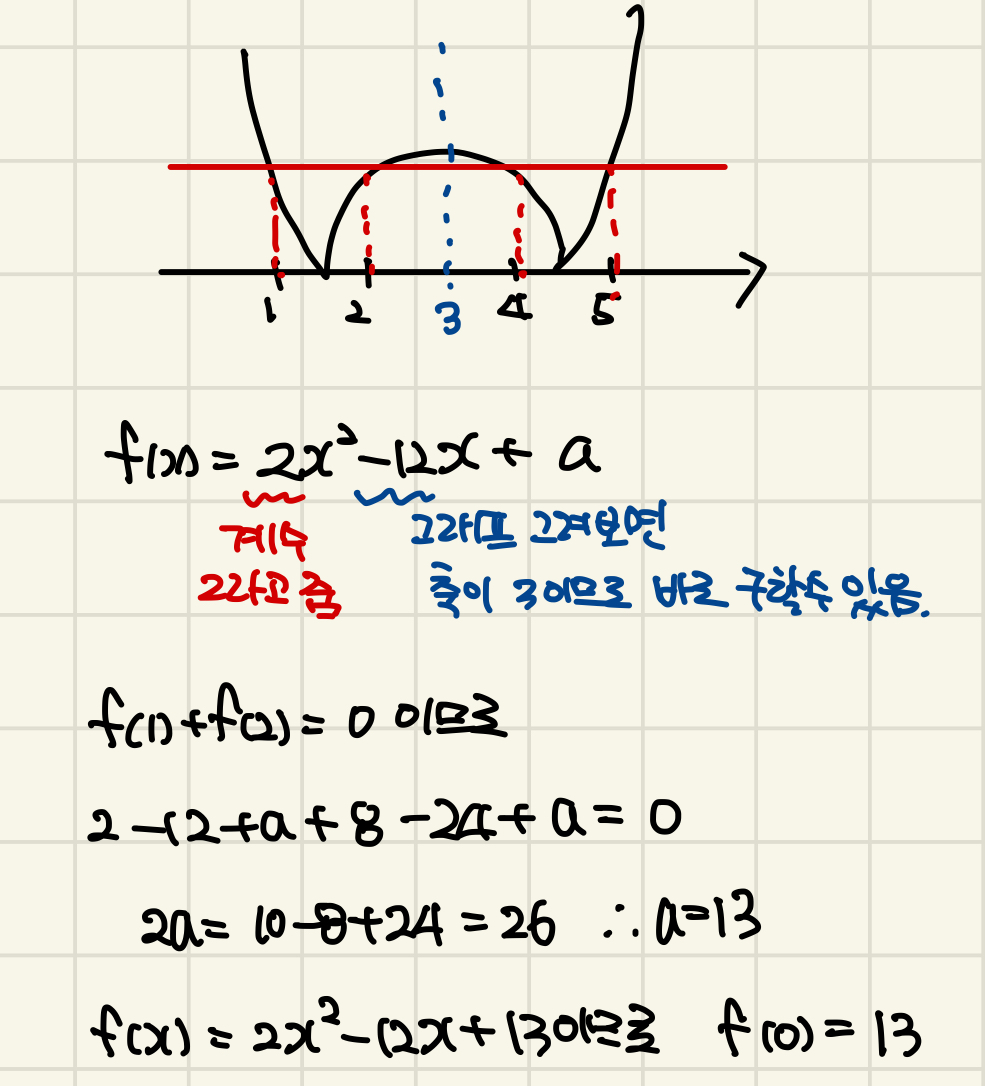 1 2 3 4 5
f(x) = 2x² - 12x + a
계수 그래프 그려보면
2라고 줌 축이 3이므로 바로 구할수 있음.
f(1) + f(2) = 0 이므로
2 - 12 + a + 8 - 24 + a = 0
2a = 10 - 8 + 24 = 26 ∴ a = 13
f(x) = 2x² - 12x + 13이므로 f(0) = 13